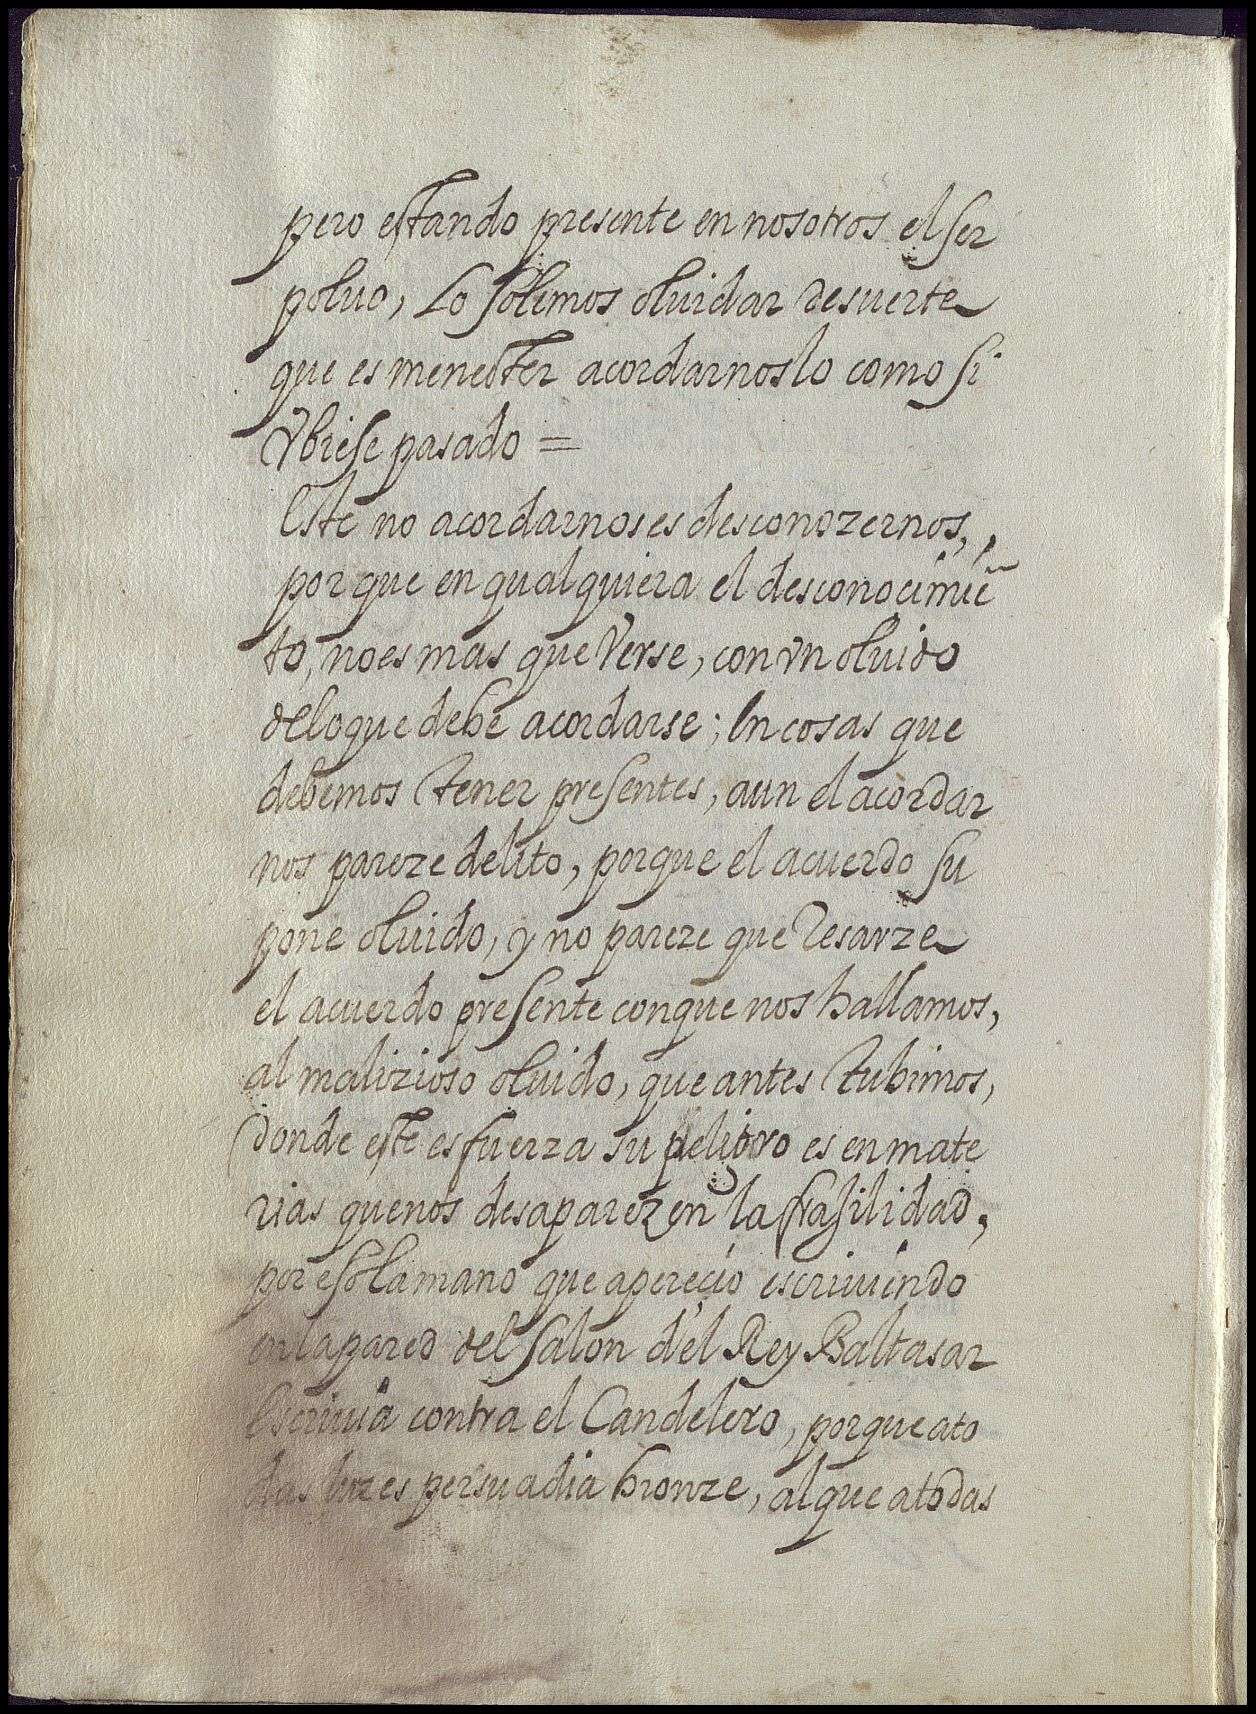 pero estando presente en nosotros el ser
poluo, Lo solemos oluidar desuerte
que es menester acordarnoslo como si
vbiese pasado =
Este no acordarnos es desconozernos,
porque en qualquiera el desconocimiẽ
to, no es mas que Verse, con vn oluido
delo que debe acordarse; En cosas que
debemos tener presentes, aun el acordar
nos pareze delito, porque el acuerdo su
pone oluido, y no pareze que Resarze
el acuerdo presente conque nos hallamos,
al malizioso oluido, que antes tubimos,
donde este esfuerza su peligro es en mate
rias que nos desaparezen la frasilidad,
por eso la mano que apereció escriuiendo
en la pared del salon del Rey Baltasar
Escriuia contra el Candelero, porque ato
das luzes persuadia bronze, al que atodas